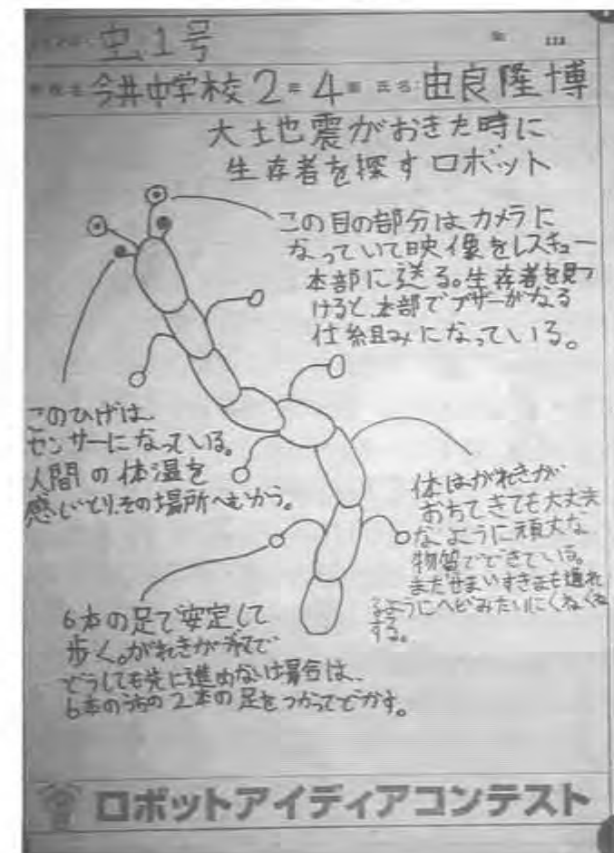 虫1号
111
今井中学校2年4組 氏名 由良隆博
大土也震がおきた時に
生存者を探すロボット
この目の部分はカメラに
なっていて映像をレスキュー
本部に送る。生存者を見つ
けると、本部でブザーがなる
仕組みになっている。
このひげは
センサーになっている。
人間の体温を
感じとり、その場所へむかう。
体はがれきが
おちてきても大丈夫
なように頑丈な
物質でできている。
まだせまいすきまも通れ
るようにヘビみたいにくねくね
する。
6本の足で安定して
歩く。がれきが
どうしても先に進めない場合は、
6本のうちの2本の足をつかってどかす。
ロボットアイディアコンテスト